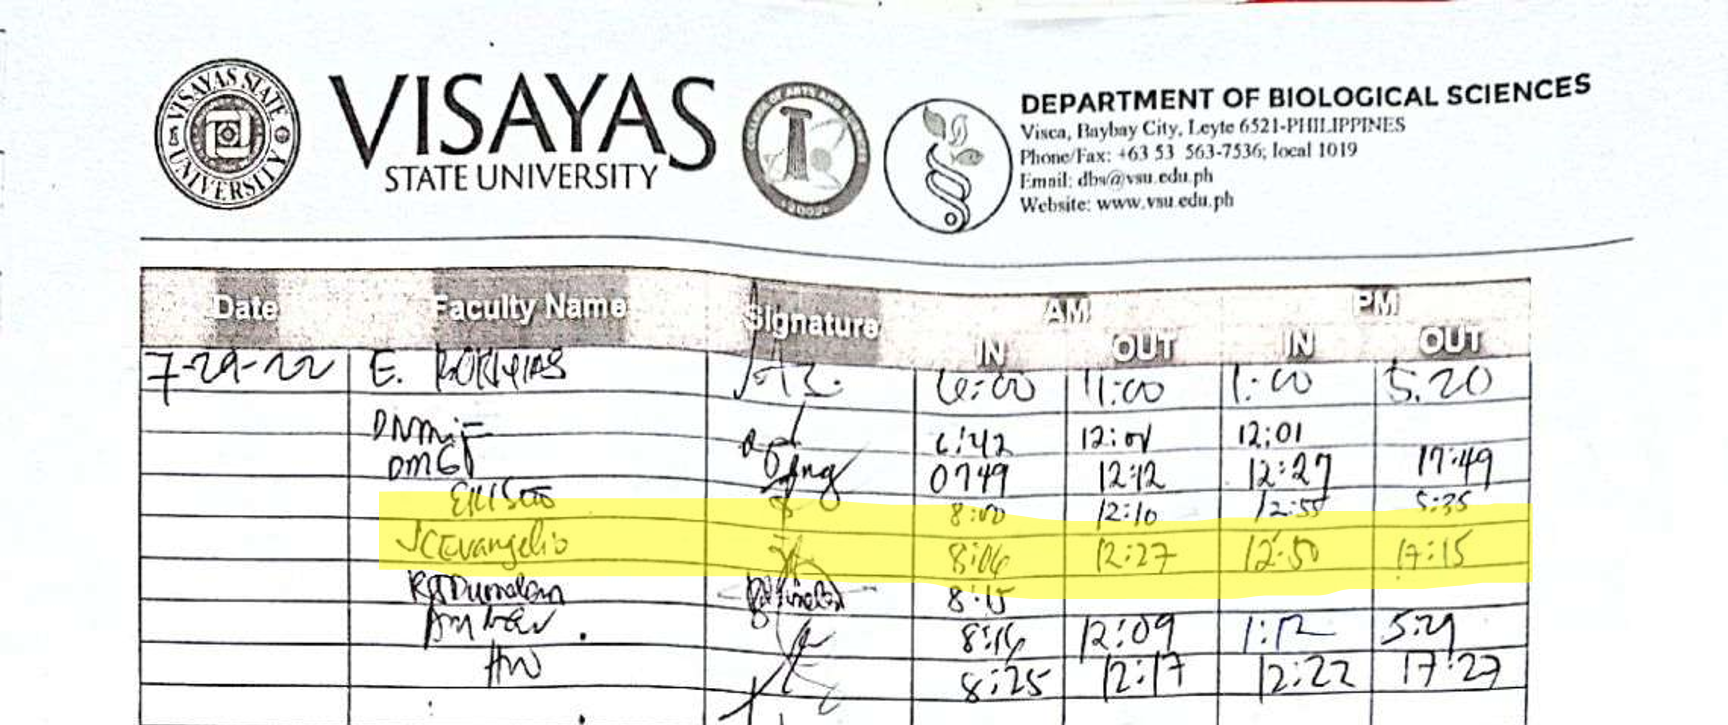 VISAYAS STATE UNIVERSITY
VISAYAS
STATE UNIVERSITY
DEPARTMENT OF BIOLOGICAL SCIENCES
Visca, Baybay City, Leyte 6521-PHILIPPINES
Phone/Fax: +63 53 563-7536; local 1019
Email: dbs@vsu.edu.ph
Website: www.vsu.edu.ph
Date Faculty Name Signature AM PM
IN OUT IN OUT
7-29-22 E. 6:00 11:00 1:00 5:20
6:42 12:01 12:01
DMG 0749 12:12 12:27 17:49
8:00 12:10 12:55 5:35
JCEvangelio 8:06 12:27 12:50 17:15
8:15
8:16 12:09 1:12 5:21
HW 8:25 12:17 12:22 17:27